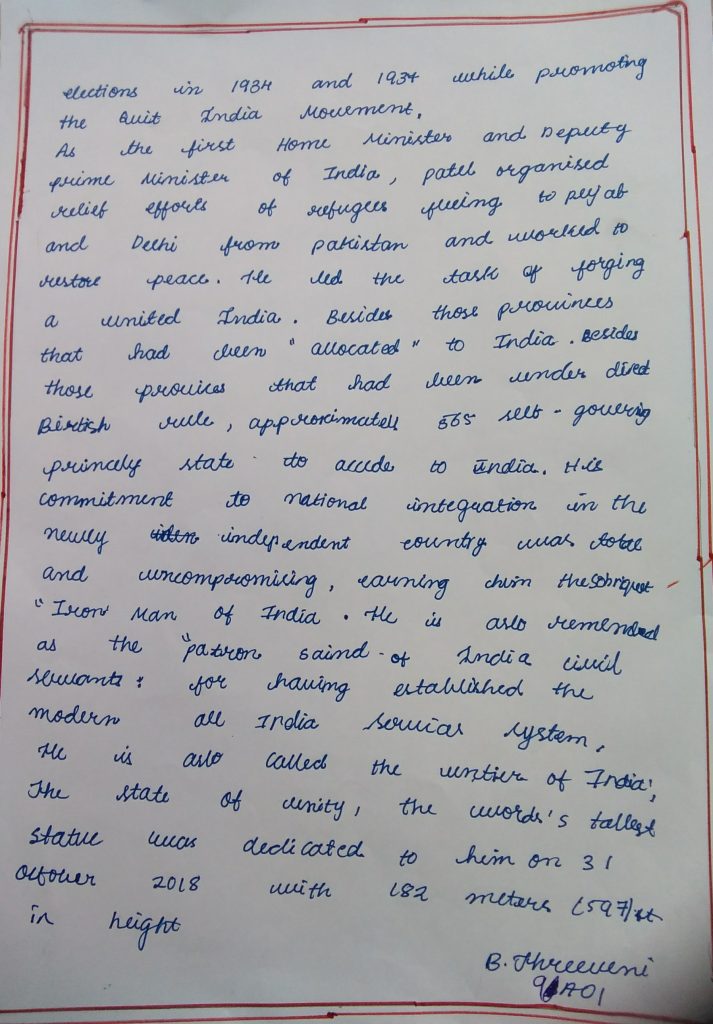 elections in 1934 and 1934 while promoting
the Quit India Movement.
As the first Home Minister and Deputy
prime Minister of India, patel organised
relief efforts of refugees fleeing to
and Delhi from pakistan and worked to
restore peace. He led the task of forging
a united India. Besides those provinces
that had been "allocated" to India. Besides
those provices that had been under direct
Birtish rule, approximatell 565 self-govering
princely state to accede to India. His
commitment to national integration in the
newly independent country was total
and uncompromising, earning him the Sobriquet
"Iron Man of India. He is aslo
as the "patron saind of India civil
servants: for having established the
modern all India services system.
He is aslo called the of India;
The state of unity, the words's tallest
statue was dedicated to him on 31
2018 with 182 meters (597)
in height
B. Threeveni